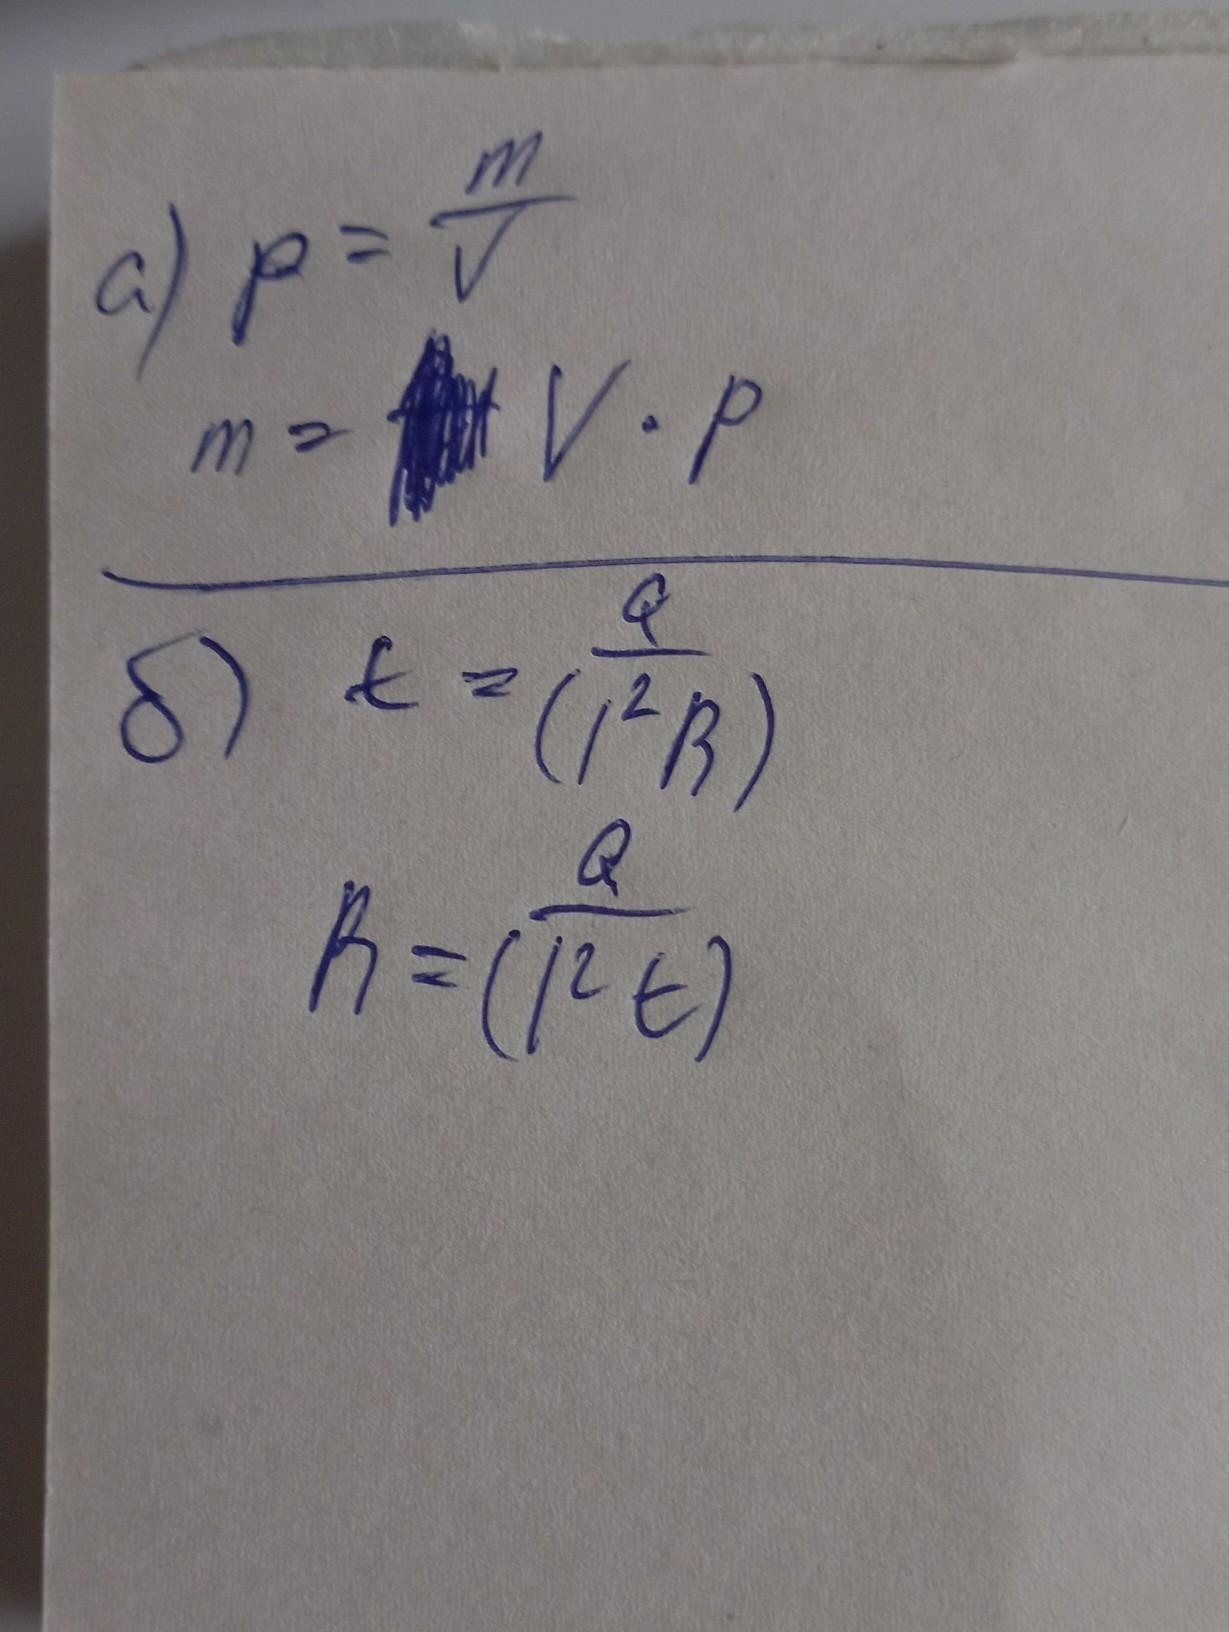 а) p = m/V
m = V · p
б) t = Q/(I²R)
R = Q/(I²t)